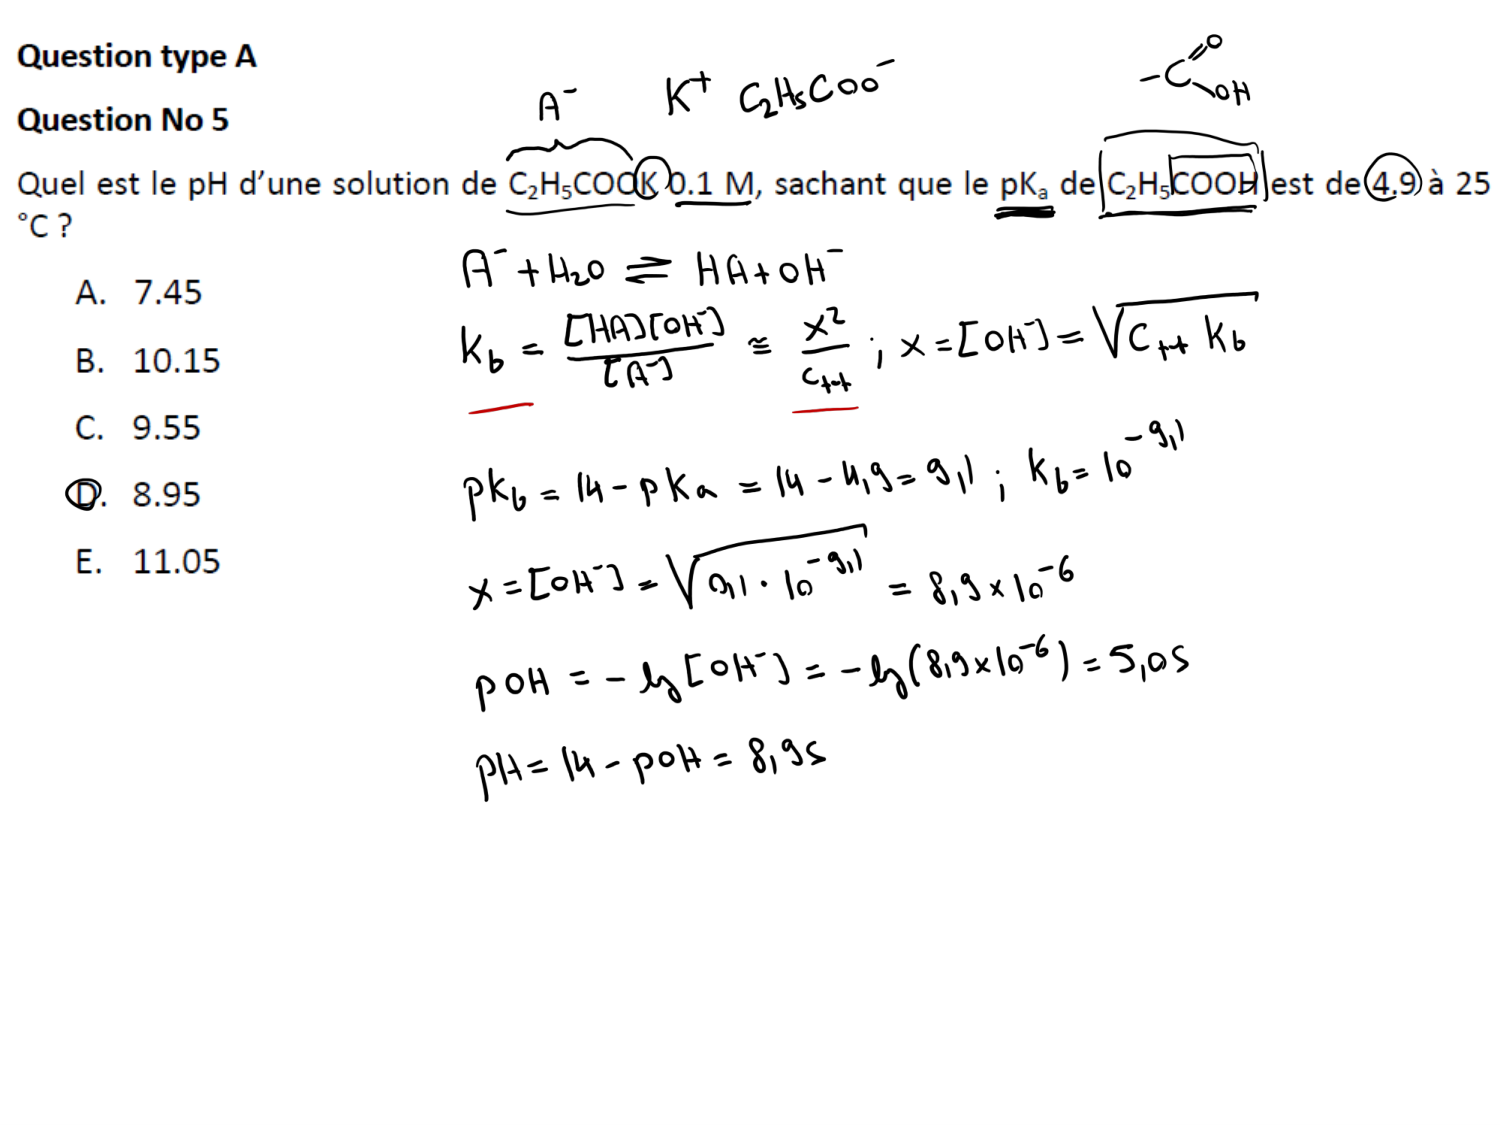 Question type A
Question No 5
A⁻ K⁺ C₂H₅COO⁻ -C=O OH
Quel est le pH d’une solution de C₂H₅COOK 0.1 M, sachant que le pKₐ de C₂H₅COOH est de 4.9 à 25
°C ?
A. 7.45
B. 10.15
C. 9.55
D. 8.95
E. 11.05
A⁻ + H₂O ⇌ HA + OH⁻
Kb = [HA][OH⁻] / [A⁻] ≅ x² / Ctot ; x = [OH⁻] = √(Ctot Kb)
pKb = 14 - pKa = 14 - 4,9 = 9,1 ; Kb = 10^-9,1
x = [OH⁻] = √(0,1 · 10^-9,1) = 8,9 x 10^-6
pOH = - lg [OH⁻] = - lg (8,9 x 10^-6) = 5,05
pH = 14 - pOH = 8,95